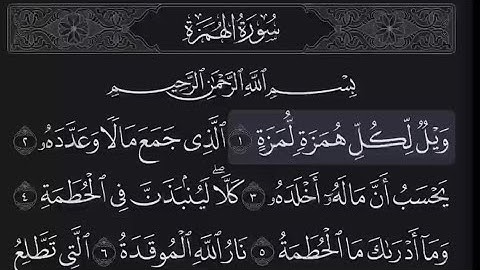 سُورَةُ الهُمَزَةِ
بِسْمِ اللَّهِ الرَّحْمَٰنِ الرَّحِيمِ
وَيْلٌ لِّكُلِّ هُمَزَةٍ لُّمَزَةٍ ١ الَّذِي جَمَعَ مَالًا وَعَدَّدَهُۥ ٢
يَحْسَبُ أَنَّ مَالَهُۥٓ أَخْلَدَهُۥ ٣ كَلَّا ۖ لَيُنۢبَذَنَّ فِي الْحُطَمَةِ ٤
وَمَآ أَدْرَىٰكَ مَا الْحُطَمَةُ ٥ نَارُ اللَّهِ الْمُوقَدَةُ ٦ الَّتِي تَطَّلِعُ